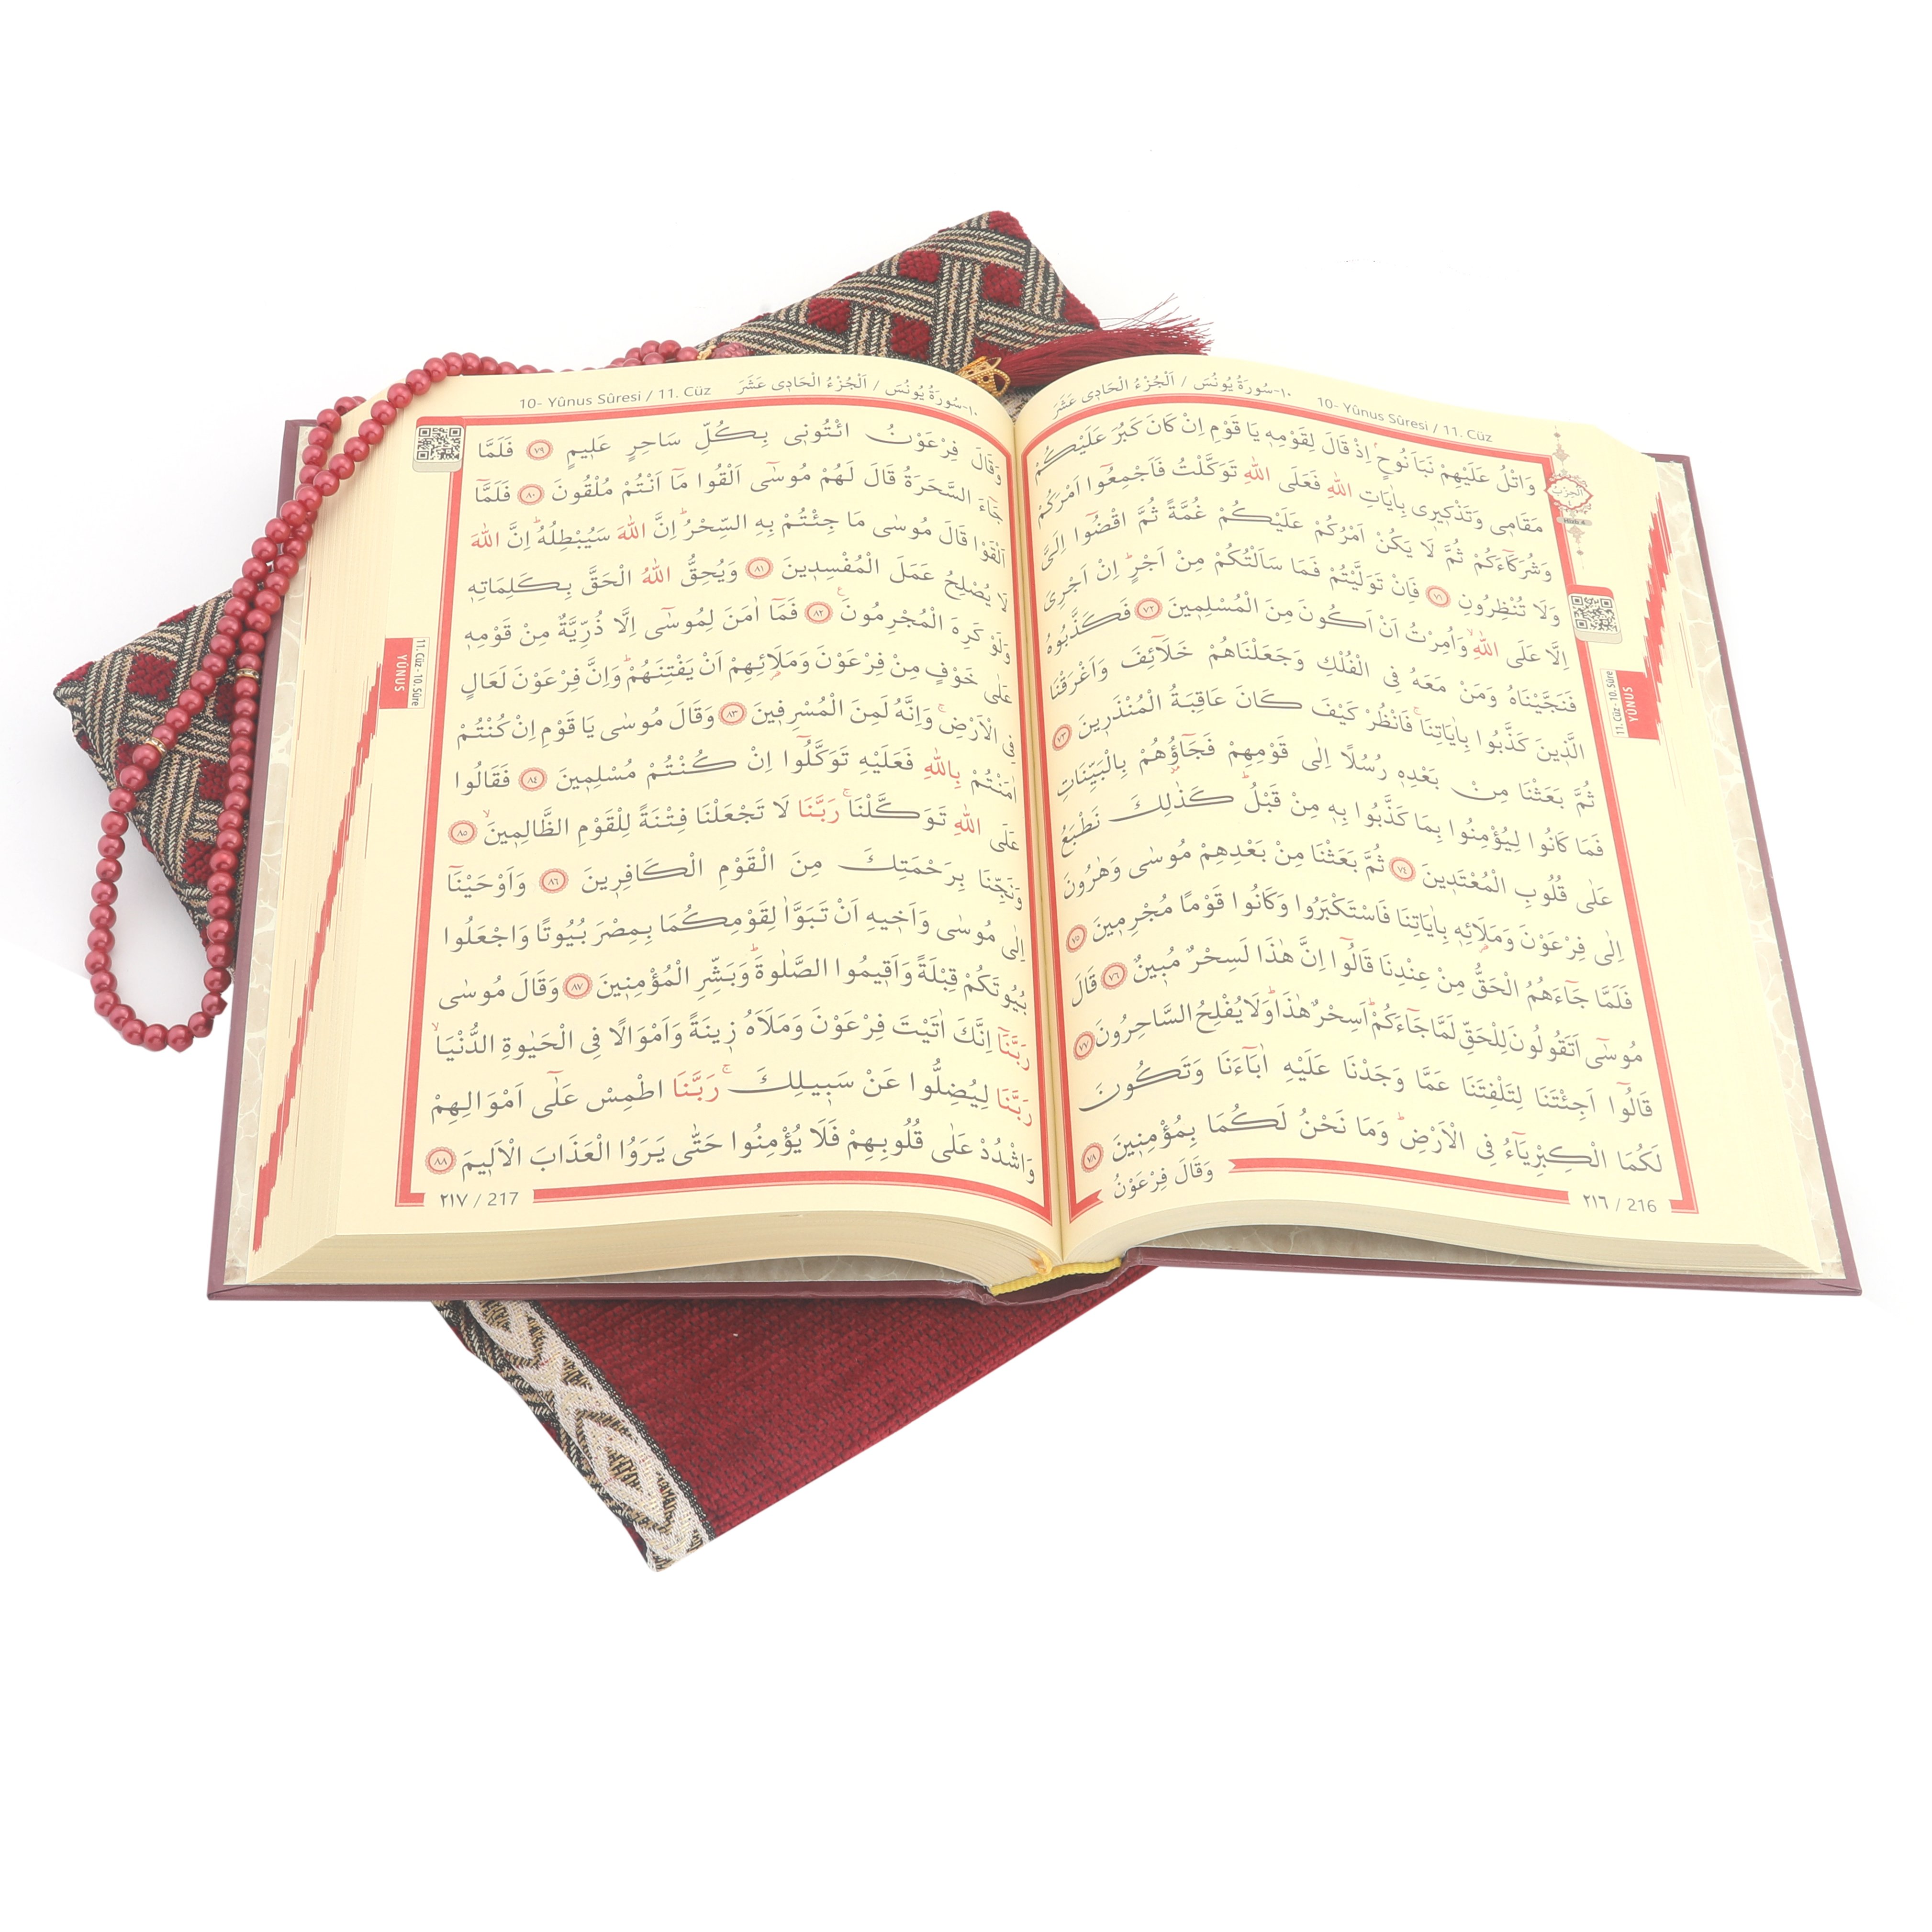 ١٠-سُورَةُ يُونُسَ / اَلْجُزْءُ الْحَادِى عَشَرَ 10- Yûnus Sûresi / 11. Cüz
وَاتْلُ عَلَيْهِمْ نَبَاَ نُوحٍۢ اِذْ قَالَ لِقَوْمِه۪ يَا قَوْمِ اِنْ كَانَ كَبُرَ عَلَيْكُمْ
مَقَام۪ى وَتَذْك۪ير۪ى بِاٰيَاتِ اللّٰهِ فَعَلَى اللّٰهِ تَوَكَّلْتُ فَاَجْمِعُٓوا اَمْرَكُمْ
وَشُرَكَٓاءَكُمْ ثُمَّ لَا يَكُنْ اَمْرُكُمْ عَلَيْكُمْ غُمَّةً ثُمَّ اقْضُٓوا اِلَىَّ
وَلَا تُنْظِرُونِ ٧١ فَاِنْ تَوَلَّيْتُمْ فَمَا سَاَلْتُكُمْ مِنْ اَجْرٍۜ اِنْ اَجْرِىَ
اِلَّا عَلَى اللّٰهِۙ وَاُمِرْتُ اَنْ اَكُونَ مِنَ الْمُسْلِم۪ينَ ٧٢ فَكَذَّبُوهُ
فَنَجَّيْنَاهُ وَمَنْ مَعَهُ فِى الْفُلْكِ وَجَعَلْنَاهُمْ خَلَٓائِفَ وَاَغْرَقْنَا
الَّذ۪ينَ كَذَّبُوا بِاٰيَاتِنَاۚ فَانْظُرْ كَيْفَ كَانَ عَاقِبَةُ الْمُنْذَر۪ينَ ٧٣
ثُمَّ بَعَثْنَا مِنْ بَعْدِه۪ رُسُلًا اِلٰى قَوْمِهِمْ فَجَٓاؤُ۫هُمْ بِالْبَيِّنَاتِ
فَمَا كَانُوا لِيُؤْمِنُوا بِمَا كَذَّبُوا بِه۪ مِنْ قَبْلُۜ كَذٰلِكَ نَطْبَعُ
عَلٰى قُلُوبِ الْمُعْتَد۪ينَ ٧٤ ثُمَّ بَعَثْنَا مِنْ بَعْدِهِمْ مُوسٰى وَهٰرُونَ
اِلٰى فِرْعَوْنَ وَمَلَا۬ئِه۪ بِاٰيَاتِنَا فَاسْتَكْبَرُوا وَكَانُوا قَوْمًا مُجْرِم۪ينَ ٧٥
فَلَمَّا جَٓاءَهُمُ الْحَقُّ مِنْ عِنْدِنَا قَالُٓوا اِنَّ هٰذَا لَسِحْرٌ مُب۪ينٌ ٧٦ قَالَ
مُوسٰٓى اَتَقُولُونَ لِلْحَقِّ لَمَّا جَٓاءَكُمْۜ اَسِحْرٌ هٰذَاۜ وَلَا يُفْلِحُ السَّاحِرُونَ ٧٧
قَالُٓوا اَجِئْتَنَا لِتَلْفِتَنَا عَمَّا وَجَدْنَا عَلَيْهِ اٰبَٓاءَنَا وَتَكُونَ
لَكُمَا الْكِبْرِيَٓاءُ فِى الْاَرْضِۜ وَمَا نَحْنُ لَكُمَا بِمُؤْمِن۪ينَ ٧٨
وَقَالَ فِرْعَوْنُ
٢١٦ / 216
الحزب
11. Cüz - 10. Sûre
YÛNUS
10- Yûnus Sûresi / 11. Cüz ١٠-سُورَةُ يُونُسَ / اَلْجُزْءُ الْحَادِى عَشَرَ
وَقَالَ فِرْعَوْنُ ائْتُون۪ى بِكُلِّ سَاحِرٍ عَل۪يمٍ ٧٩ فَلَمَّا
جَٓاءَ السَّحَرَةُ قَالَ لَهُمْ مُوسٰٓى اَلْقُوا مَٓا اَنْتُمْ مُلْقُونَ ٨٠ فَلَمَّٓا
اَلْقَوْا قَالَ مُوسٰى مَا جِئْتُمْ بِهِ السِّحْرُۜ اِنَّ اللّٰهَ سَيُبْطِلُهُۜ اِنَّ اللّٰهَ
لَا يُصْلِحُ عَمَلَ الْمُفْسِد۪ينَ ٨١ وَيُحِقُّ اللّٰهُ الْحَقَّ بِكَلِمَاتِه۪
وَلَوْ كَرِهَ الْمُجْرِمُونَۚ ٨٢ فَمَٓا اٰمَنَ لِمُوسٰٓى اِلَّا ذُرِّيَّةٌ مِنْ قَوْمِه۪
عَلٰى خَوْفٍ مِنْ فِرْعَوْنَ وَمَلَا۬ئِهِمْ اَنْ يَفْتِنَهُمْۜ وَاِنَّ فِرْعَوْنَ لَعَالٍ
فِى الْاَرْضِۚ وَاِنَّهُ لَمِنَ الْمُسْرِف۪ينَ ٨٣ وَقَالَ مُوسٰى يَا قَوْمِ اِنْ كُنْتُمْ
اٰمَنْتُمْ بِاللّٰهِ فَعَلَيْهِ تَوَكَّلُٓوا اِنْ كُنْتُمْ مُسْلِم۪ينَ ٨٤ فَقَالُوا
عَلَى اللّٰهِ تَوَكَّلْنَاۚ رَبَّنَا لَا تَجْعَلْنَا فِتْنَةً لِلْقَوْمِ الظَّالِم۪ينَۙ ٨٥
وَنَجِّنَا بِرَحْمَتِكَ مِنَ الْقَوْمِ الْكَافِر۪ينَ ٨٦ وَاَوْحَيْنَٓا
اِلٰى مُوسٰى وَاَخ۪يهِ اَنْ تَبَوَّاٰ لِقَوْمِكُمَا بِمِصْرَ بُيُوتًا وَاجْعَلُوا
بُيُوتَكُمْ قِبْلَةً وَاَق۪يمُوا الصَّلٰوةَۜ وَبَشِّرِ الْمُؤْمِن۪ينَ ٨٧ وَقَالَ مُوسٰى
رَبَّنَٓا اِنَّكَ اٰتَيْتَ فِرْعَوْنَ وَمَلَاَهُ ز۪ينَةً وَاَمْوَالًا فِى الْحَيٰوةِ الدُّنْيَاۙ
رَبَّنَا لِيُضِلُّوا عَنْ سَب۪يلِكَۚ رَبَّنَا اطْمِسْ عَلٰٓى اَمْوَالِهِمْ
وَاشْدُدْ عَلٰى قُلُوبِهِمْ فَلَا يُؤْمِنُوا حَتّٰى يَرَوُا الْعَذَابَ الْاَل۪يمَ ٨٨
٢١٧ / 217
11. Cüz - 10. Sûre
YÛNUS